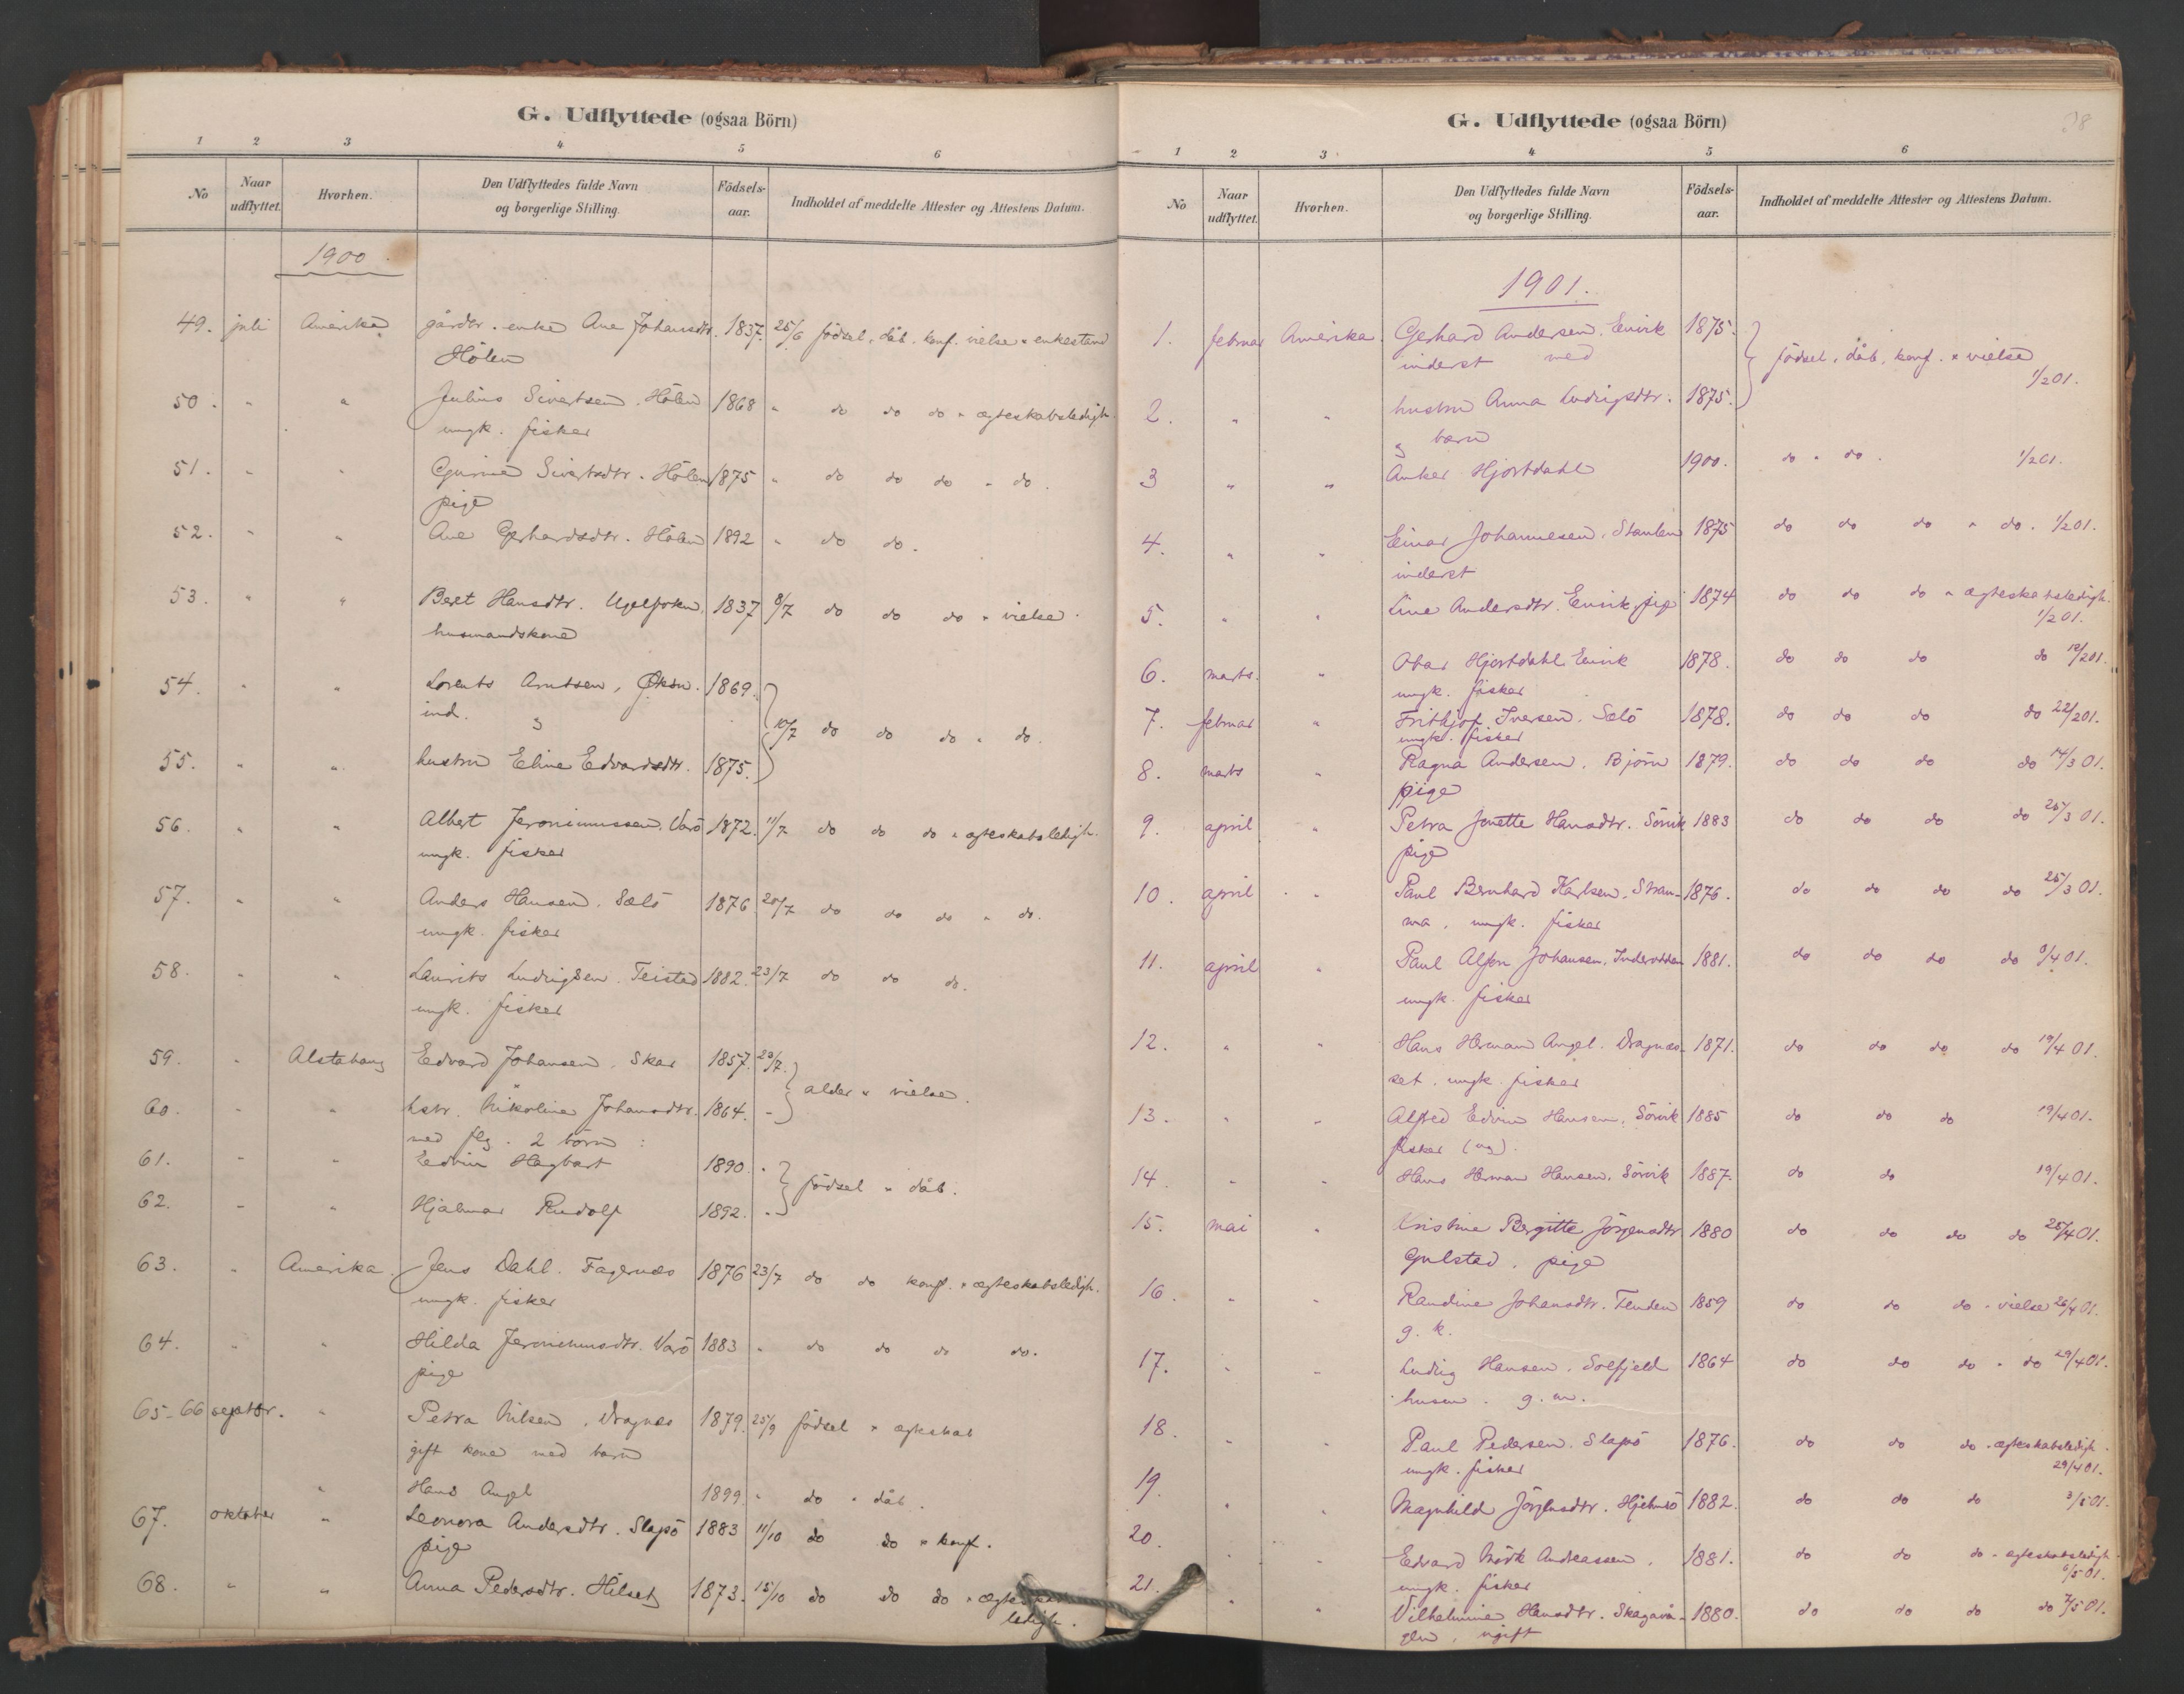 G. Udflyttede (ogsaa Börn)
1 2 3 4 5 6
No Naar udflyttet. Hvorhen. Den Udflyttedes fulde Navn og borgerlige Stilling. Födsels-aar. Indholdet af meddelte Attester og Attestens Datum.
1900
49. juli Amerika gårdbr. enke Ane Johansdtr. 1837. 25/6 födsel, dåb, konf. vielse " enkestand
Hölen
50. " " Julius Sivertsen. Hölen 1868 " do do do " ægteskabsledigh.
ungk. fisker
51. " " Gurine Sivertsdtr. Hölen 1875 " do do do " do.
pige
52. " " Ane Gerhardsdtr. Hölen 1892 " do do.
53. " " Beret Hansdtr. 1837 8/7 do do do " vielse.
husmandskone
54. " " Lorents Arntsen, Öksn. 1869.
ind. og 10/7 do do do " do.
55. " " hustru Eline Edvardsdtr. 1875.
56. " " Albert Jeronimussen, Varö 1872. 11/7 do do do " ægteskabsledigh.
ungk. fisker
57. " " Anders Hansen. Sælö 1876 20/7 do do do " do.
ungk. fisker
58. " " Laurits Ludvigsen. Teistad 1882. 23/7 do do do.
ungk. fisker
59. " Alstahaug Edvard Johansen. Skar 1857. 23/7.
alder " vielse.
60. " " hstr. Nikoline Johansdtr. 1864. "
med flg. 2 börn :
61. " " Edvin Hagbart 1890. "
födsel " dåb.
62. " " Hjalmar Rudolf 1892. "
63. " Amerika. Jens Dahl. Fagernæs 1876 23/7 do do konf. " ægteskabsledigh.
ungk. fisker
64. " " Hilda Jeronimusdtr. Varö 1883 " do do do do.
pige
65-66 septbr. " Petra Nilsen, Dragnæs 1879. 25/9 födsel " ægteskab
gift kone med barn
" Hans Angel 1899. " do " dåb.
67. oktober " Leonora Andersdtr. Slapö 1883 11/10 do do " konf.
pige
68. " " Anna Pedersdtr. Hilset 1873. 15/10 do do do "
ledigh.
G. Udflyttede (ogsaa Börn) 38
1 2 3 4 5 6
No Naar udflyttet. Hvorhen. Den Udflyttedes fulde Navn og borgerlige Stilling. Födsels-aar. Indholdet af meddelte Attester og Attestens Datum.
1901.
1. februar Amerika. Gerhard Andersen. Envik 1875.
inderst med födsel, dåb, konf. " vielse
1/2 01.
2. " " hustru Anna Ludvigsdtr. 1875.
og barn
3 " " Anker Hjortdahl 1900. do " do. 1/2 01.
4. " " Einar Johannesen. Stamlen 1875 do do do " do. 1/2 01.
inderst
5. " " Line Andersdtr. Envik, pige 1874 do do do " ægteskabsledigh.
1/2 01.
6. marts. " Hjortdahl Envik 1878. do do do do 18/2 01.
ungk. fisker
7. februar " Frithjof Iversen. Sælö 1878. do do do do 22/2 01.
ungk. fisker
8. marts " Ragna Andersen. Björn 1879. do do do do 14/3 01.
pige
9. april " Petra Jonette Hansdtr. Sörvik 1883 do do do do 25/3 01.
pige
10. april " Paul Bernhard Karlsen. Stran- 1876. do do do do 25/3 01.
na. ungk. fisker
11. april " Paul Alfon Johansen. Inderodden 1881. do do do do 9/4 01.
ungk. fisker
12. " " Hans Herman Angel. Dragnæs- 1871. do do do do 19/4 01.
set. ungk. fisker
13. " " Alfred Edvin Hansen. Sörvik 1885 do do do 19/4 01.
fisker (ug).
14. " " Hans Herman Hansen. Sörvik 1887. do do 19/4 01.
15. mai " Kristine Bergitte Jörgensdtr 1880 do do do do 25/4 01.
Gulstad. pige
16. " " Randine Johansdtr. Tenden 1859 do do do " vielse 26/4 01.
g. k.
17. " " Ludvig Hansen. Solfjeld 1864 do do do " do 29/4 01.
husm. g. m.
18. " " Paul Pedersen. Slapö 1876. do do do " ægteskabsledigh.
ungk. fisker 29/4 01.
19. " " Magnhild Jörgensdtr. Hjelmsö 1882. do do do 3/5 01.
20. " " Edvard Mörk Andreassen. 1881. do do do " ægteskabsledigh.
ungk. fisker 6/5 01.
21. " " Vilhelmine Hansdtr. Skagavå- 1880. do do do do 7/5 01.
gen, ugift